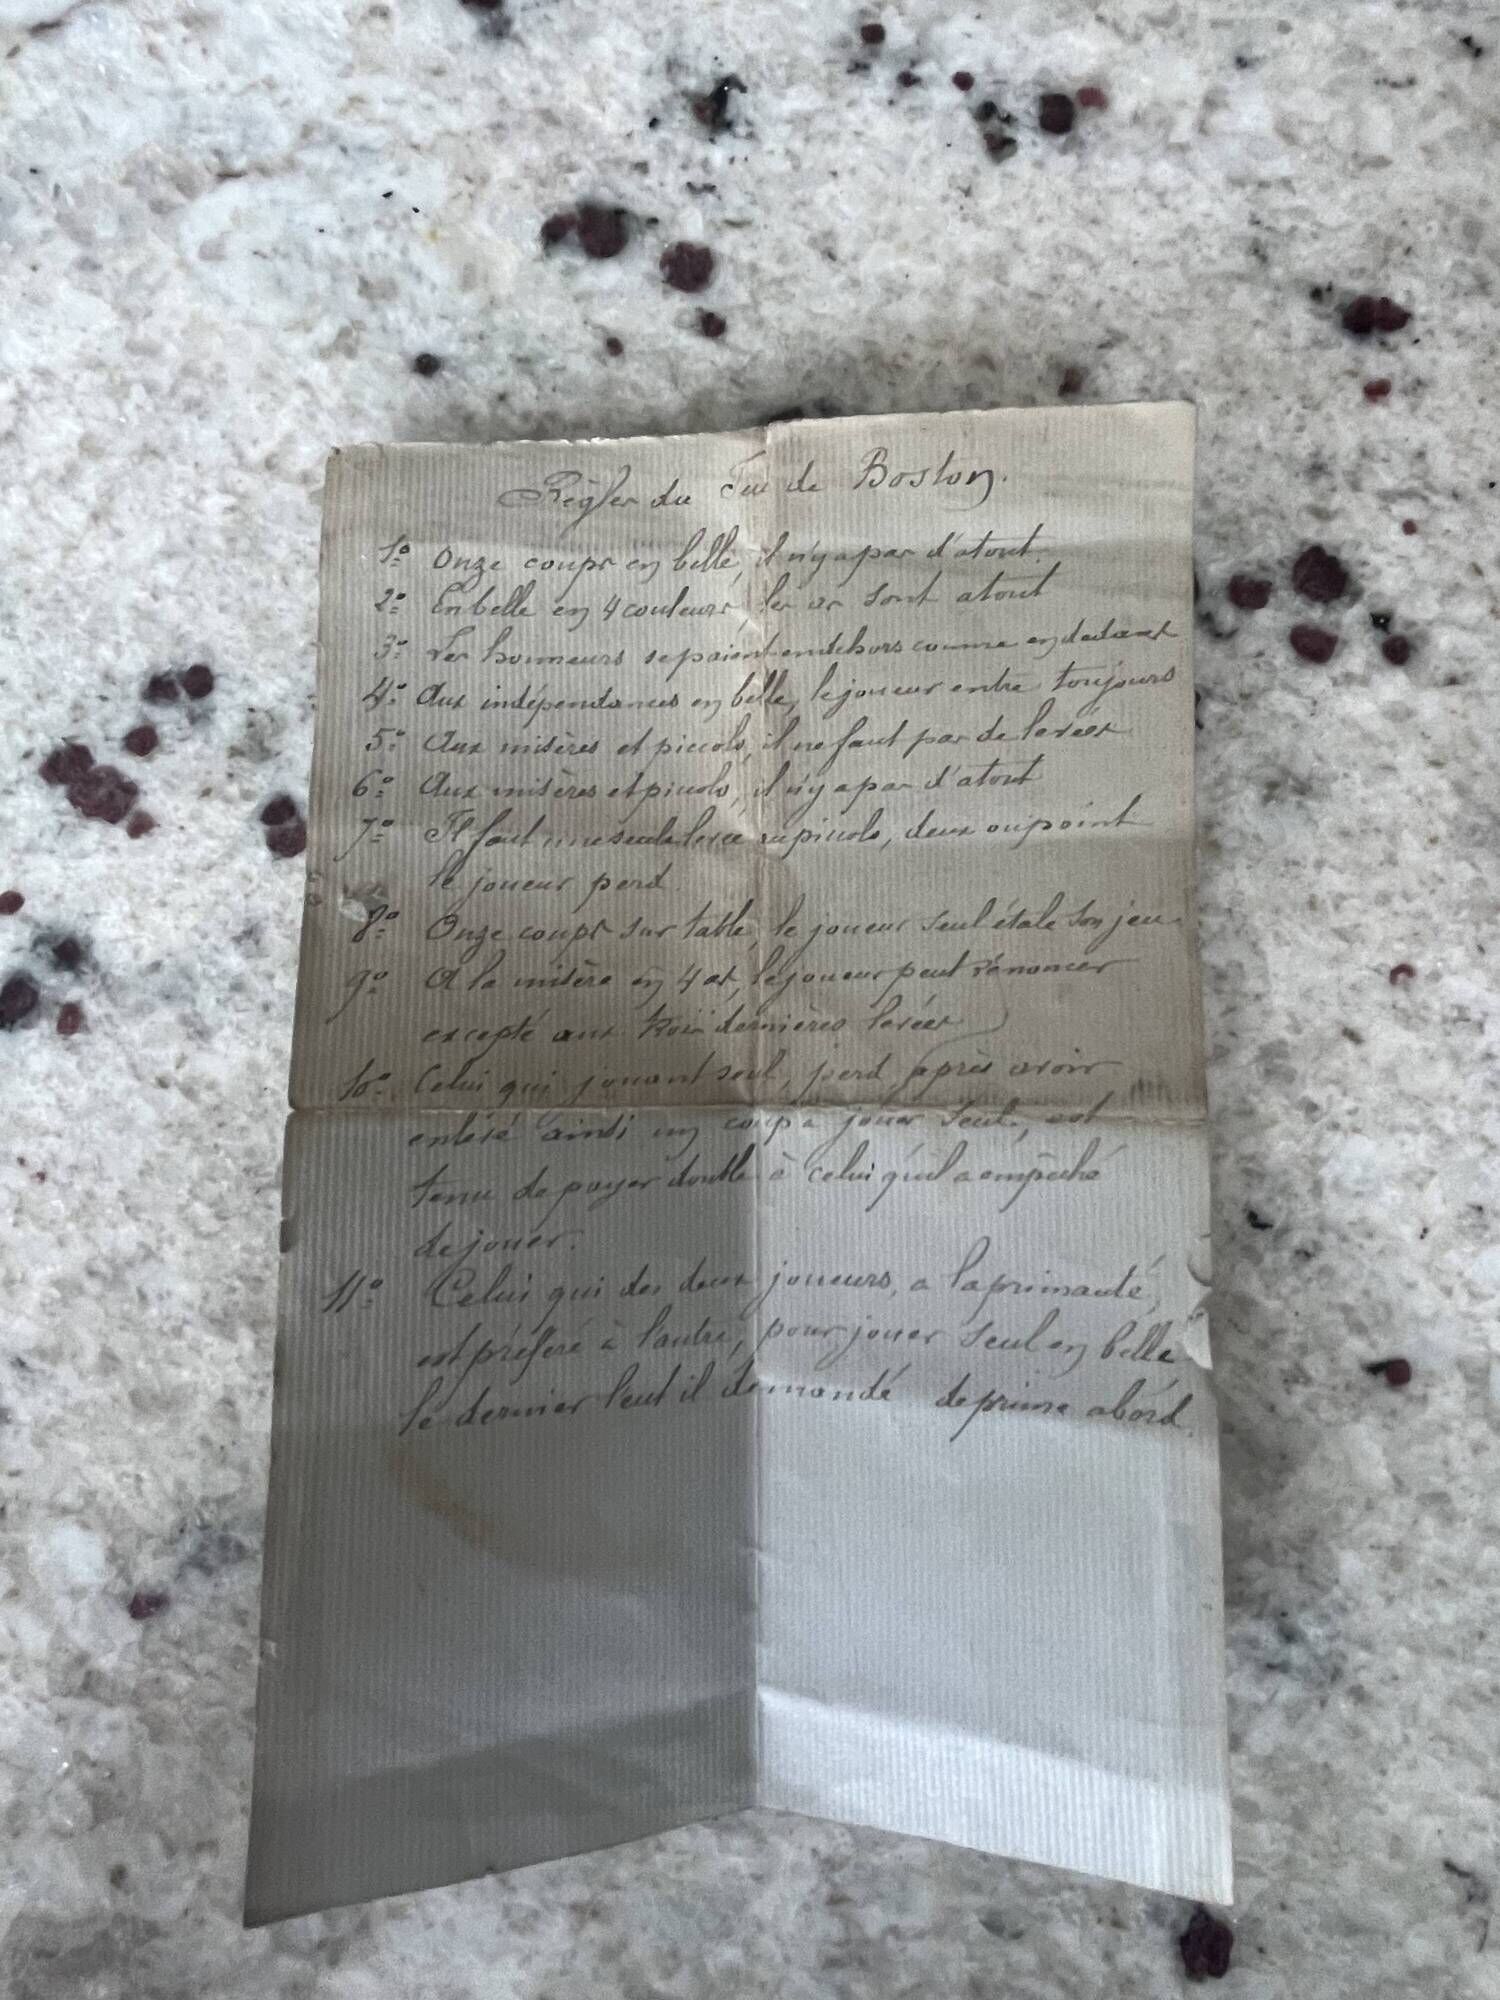 Règles du Jeu de Boston.
1º Onze coups en belle, il n'y a pas d'atout.
2º En belle en 4 couleurs, les as sont atout
3º Les honneurs se paient en dehors comme en dedans
4º Aux indépendances en belle, le joueur entre toujours
5º Aux misères et piccolo, il ne faut pas de levées
6º Aux misères et piccolo, il n'y a pas d'atout
7º Il faut une seule levée au piccolo, deux ou point
le joueur perd.
8º Onze coups sur table, le joueur seul étale son jeu.
9º A la misère en 4 as, le joueur peut rénoncer
excepté aux trois dernières levées
10º Celui qui jouant seul, perd, après avoir
enlevé ainsi un coup à jouer seul, est
tenu de payer double à celui qu'il a empêché
de jouer.
11º Celui qui des deux joueurs, a la primauté,
est préféré à l'autre, pour jouer seul en belle
le dernier l'eut il demandé de prime abord.